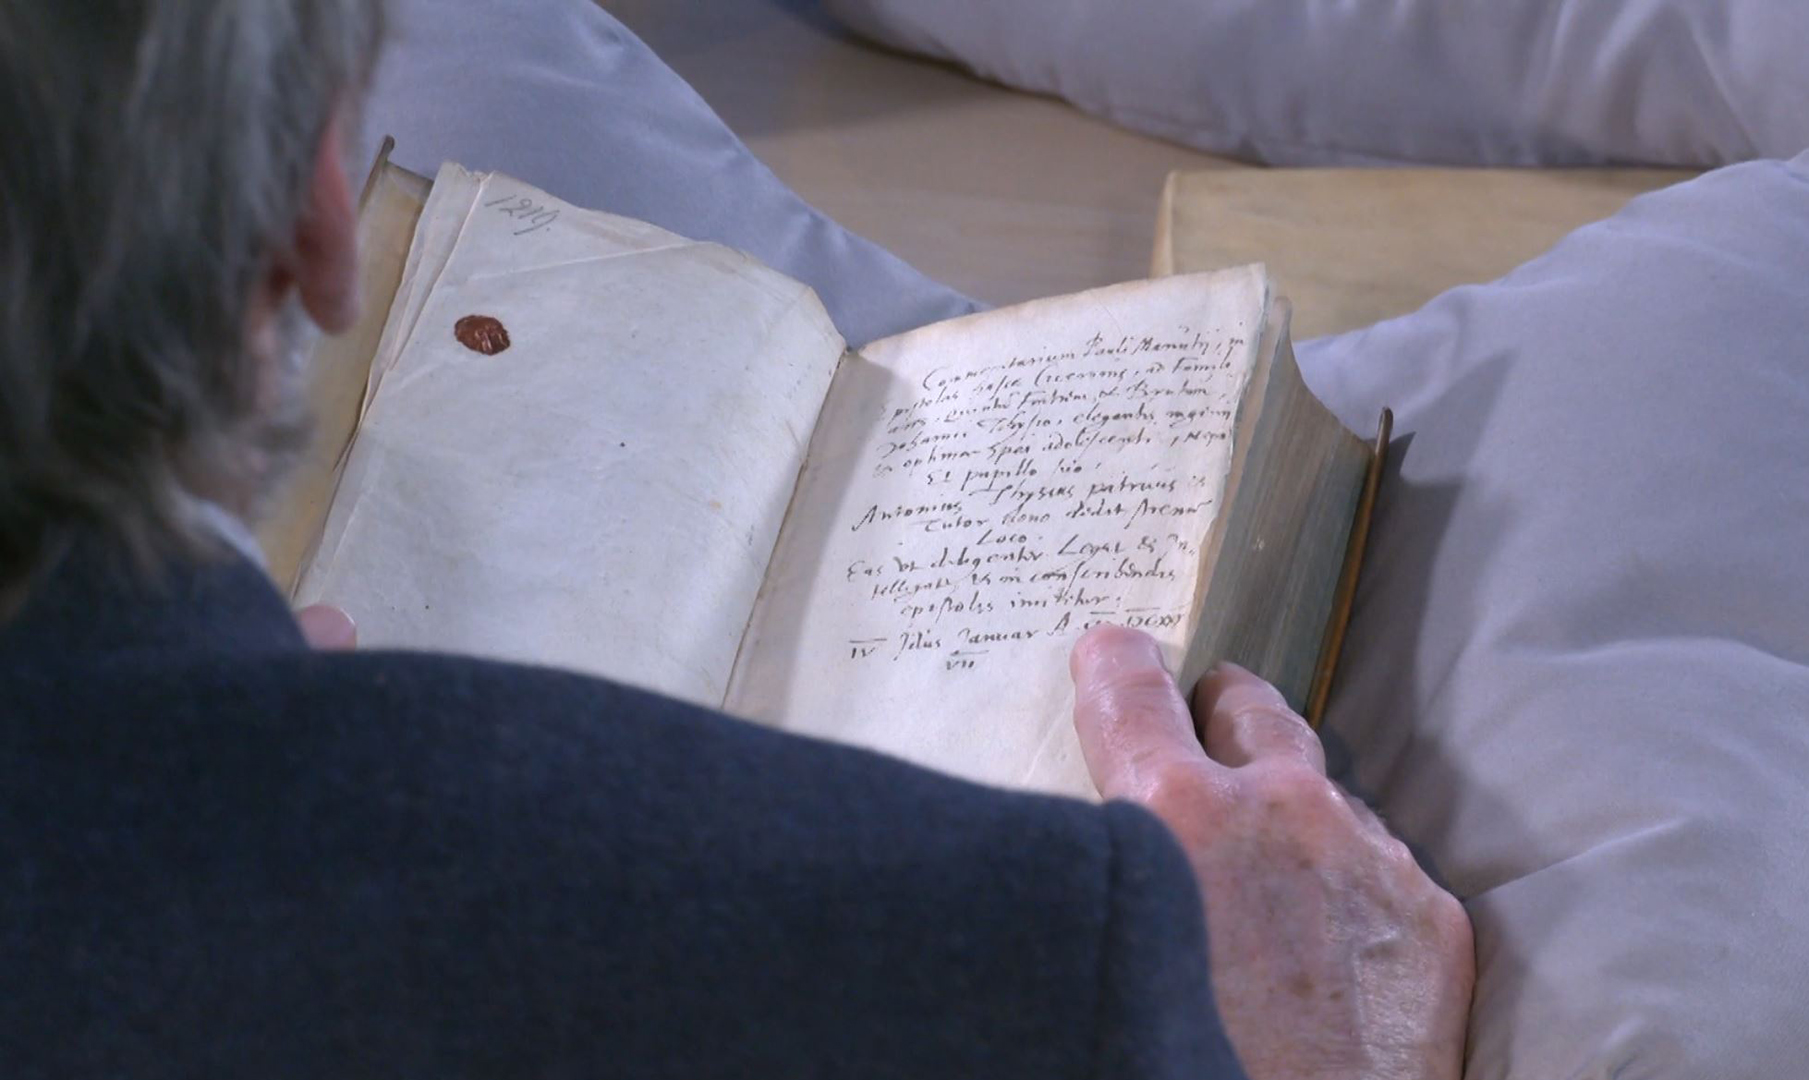 1219.
Commentarium Pauli Manutij, in
Epistolas hasce Ciceronis, ad Famili
ares, Quintũ fratrem, & Brutum,
Johanni Thysio, elegantis ingenii
& optimae spei adolescenti, Nepo
Et pupillo suo,
Antonius Thysius patruus &
Tutor dono dedit
Loco.
Eas ut diligenter Legat & In„
telligat, & in conscribendis
epistolis imitetur.
IV Idus Januar A
VII